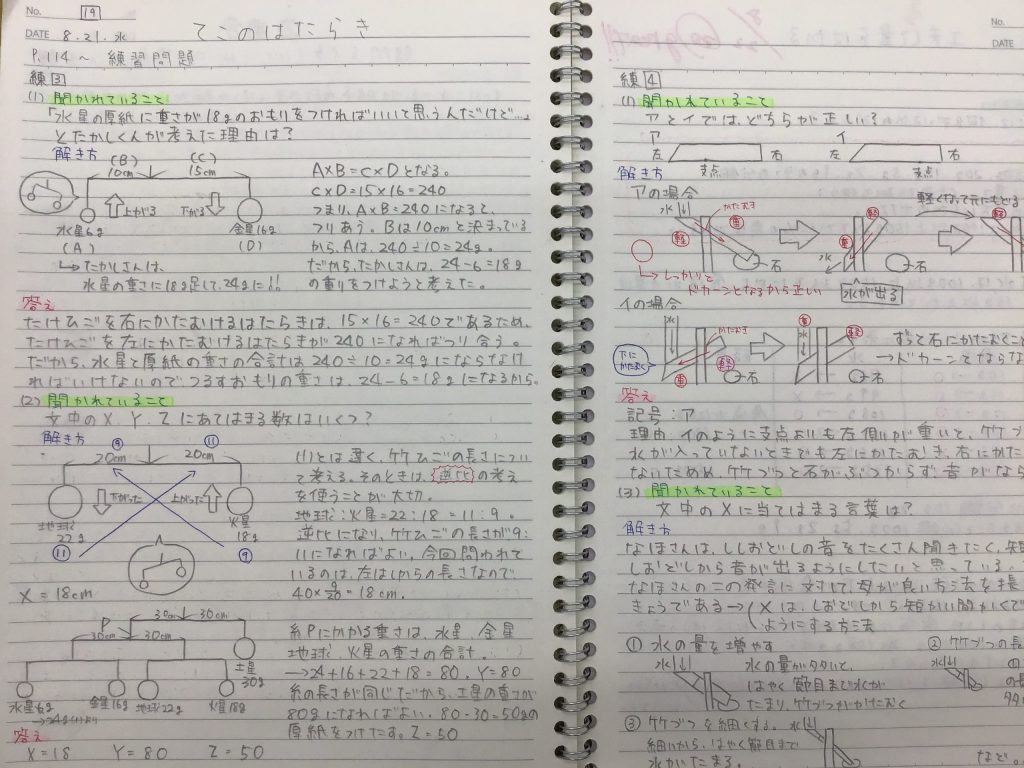 No. 19
DATE 8.21.水
てこのはたらき
P.114〜 練習問題
練3
(1) 聞かれていること
「水星の厚紙に重さが18gのおもりをつければいいって思うんだけど…」
とたかしくんが考えた理由は?
解き方
(B) (C)
10cm 15cm
上がる 下がる
水星6g 金星16g
(A) (D)
↳たかしさんは、
水星の重さに18g足して、24gに!!
A×B=C×Dとなる。
C×D=15×16=240
つまり、A×B=240になると、
つりあう。Bは10cmと決まっている
から、Aは、240÷10=24g。
だから、たかしさんは、24-6=18g
の重りをつけようと考えた。
答え
たけひごを右にかたむけるはたらきは、15×16=240であるため、
たけひごを左にかたむけるはたらきが240になればつり合う。
だから、水星と厚紙の重さの合計は240÷10=24gにならなけ
ればいけないので、つるすおもりの重さは、24-6=18gになるから。
(2) 聞かれていること
文中のX、Y、Zにあてはまる数はいくつ?
解き方
⑨ ⑪
20cm 20cm
下がった 上がった
地球 22g
火星 18g
⑪ ⑨
X=18cm
(1)とは違く、竹ひごの長さについ
て考える。そのときは、逆比の考え
を使うことが大切。
地球:火星=22:18=11:9。
逆比になり、竹ひごの長さが9:
11になればよい。今回問われて
いるのは、左はしからの長さなので、
40×9/20=18cm.
30cm 30cm
P
30cm 30cm
土星 30g
水星6g 金星16g 地球22g 火星18g
糸Pにかかる重さは、水星、金星
地球、火星の重さの合計。
→24+16+22+18=80、Y=80
糸の長さが同じだから、土星の重さが
80gになればよい。80-30=50gの
厚紙をつけたす。Z=50
答え
X=18 Y=80 Z=50
No.
DATE
練4
(1) 聞かれていること
アとイでは、どちらが正しい?
ア イ
左 右 左 右
支点 支点
解き方
アの場合
水 かたむき 重 軽 石
↳しっかりと
ドカーンとなるから正しい
軽 重 水 石
水が出る
軽くなって元にもどる
軽
イの場合
水 かたむき 軽 重 石
下にかたむく
水 軽 重 石
ずっと右にかたむくこと
→ドカーンとならな
答え
記号:ア
理由、イのように支点よりも左側が重いと、竹づつ
水が入っていないときでも左にかたむき、右にかた
ないためめ、竹づつと石がぶつからず、音がなら
(3) 聞かれていること
文中のXに当てはまる言葉は?
解き方
なほさんは、ししおどしの音をたくさん聞きたく、短
しおどしから音が出るようにしたいと思っている。
なほさんのこの発言に対して、母が良い方法を提
きょうである→(Xは、しおどしから短かい間かくで
ようにする方法
① 水の量を増やす
水
水の量が多いと、
はやく節目まで水が
たまり、竹づつがかたむく
② 竹づつの長
水
③ 竹づつを細くする。
水
細いから、はやく節目まで
水がたまる。
など。